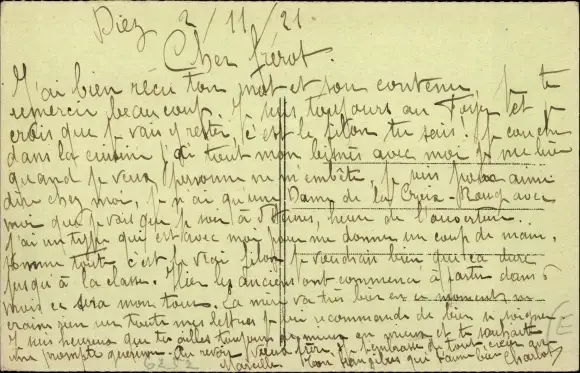 Diez 2/11/21
Cher frérot.
J'ai bien reçu ton mot et son contenu, je te
remercie beaucoup. Je suis toujours au Foyer et je
crois que je vais y rester, c'est le filon tu sais. Je couche
dans la cuisine j'ai tout mon avec moi je me lève
quand je veux personne ne m'embête, je suis pour ainsi
dire chez moi, je n'ai qu'une Dame de la Croix-Rouge avec
moi que je vois que le soir à heures, heure de l'ouverture.
J'ai un type qui est avec moi pour me donner un coup de main,
somme toute c'est le vrai filon je voudrais bien que ça dure
jusqu'à la classe. Hier les anciens ont commencé à partir dans 6
mois ce sera mon tour. La mine va très bien en ce moment
je lui recommande de bien se soigner
Je suis heureux que tu ailles toujours de mieux en mieux et te souhaite
une prompte guérison. Au revoir vieux frère, je t'embrasse de tout cœur
Marcelle. Ton frangibus qui t'aime bien Charlot
6252